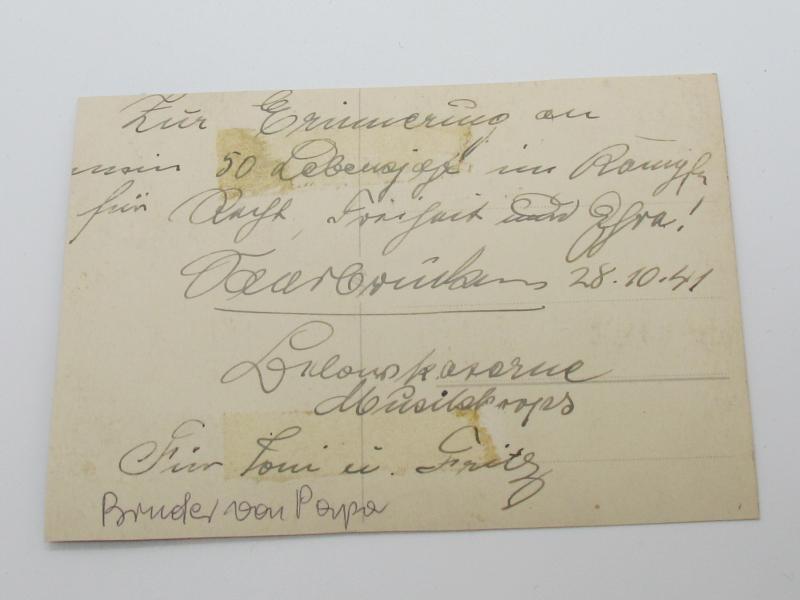 Zur Erinnerung an
mein 50 Lebensjahr im Kampfe
für Recht, Freiheit und Ehre!
Saarbrücken 28.10.41
Belowkaserne
Musikkorps
Für Toni u. Fritz
Bruder von Papa